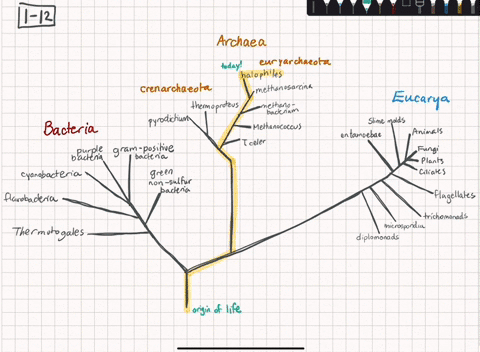 1-12
Archaea
today!
euryarchaeota
halophiles
methanosarcina
crenarchaeota
thermoproteus
methano-
bacterium
pyrodictium
Methanococcus
T. celer
Eucarya
Slime molds
entamoebae
Animals
Fungi
Plants
Ciliates
Flagellates
trichomonads
microsporidia
diplomonads
Bacteria
purple
bacteria
gram-positive
bacteria
cyanobacteria
green
non-sulfur
bacteria
flavobacteria
Thermotogales
origin of life